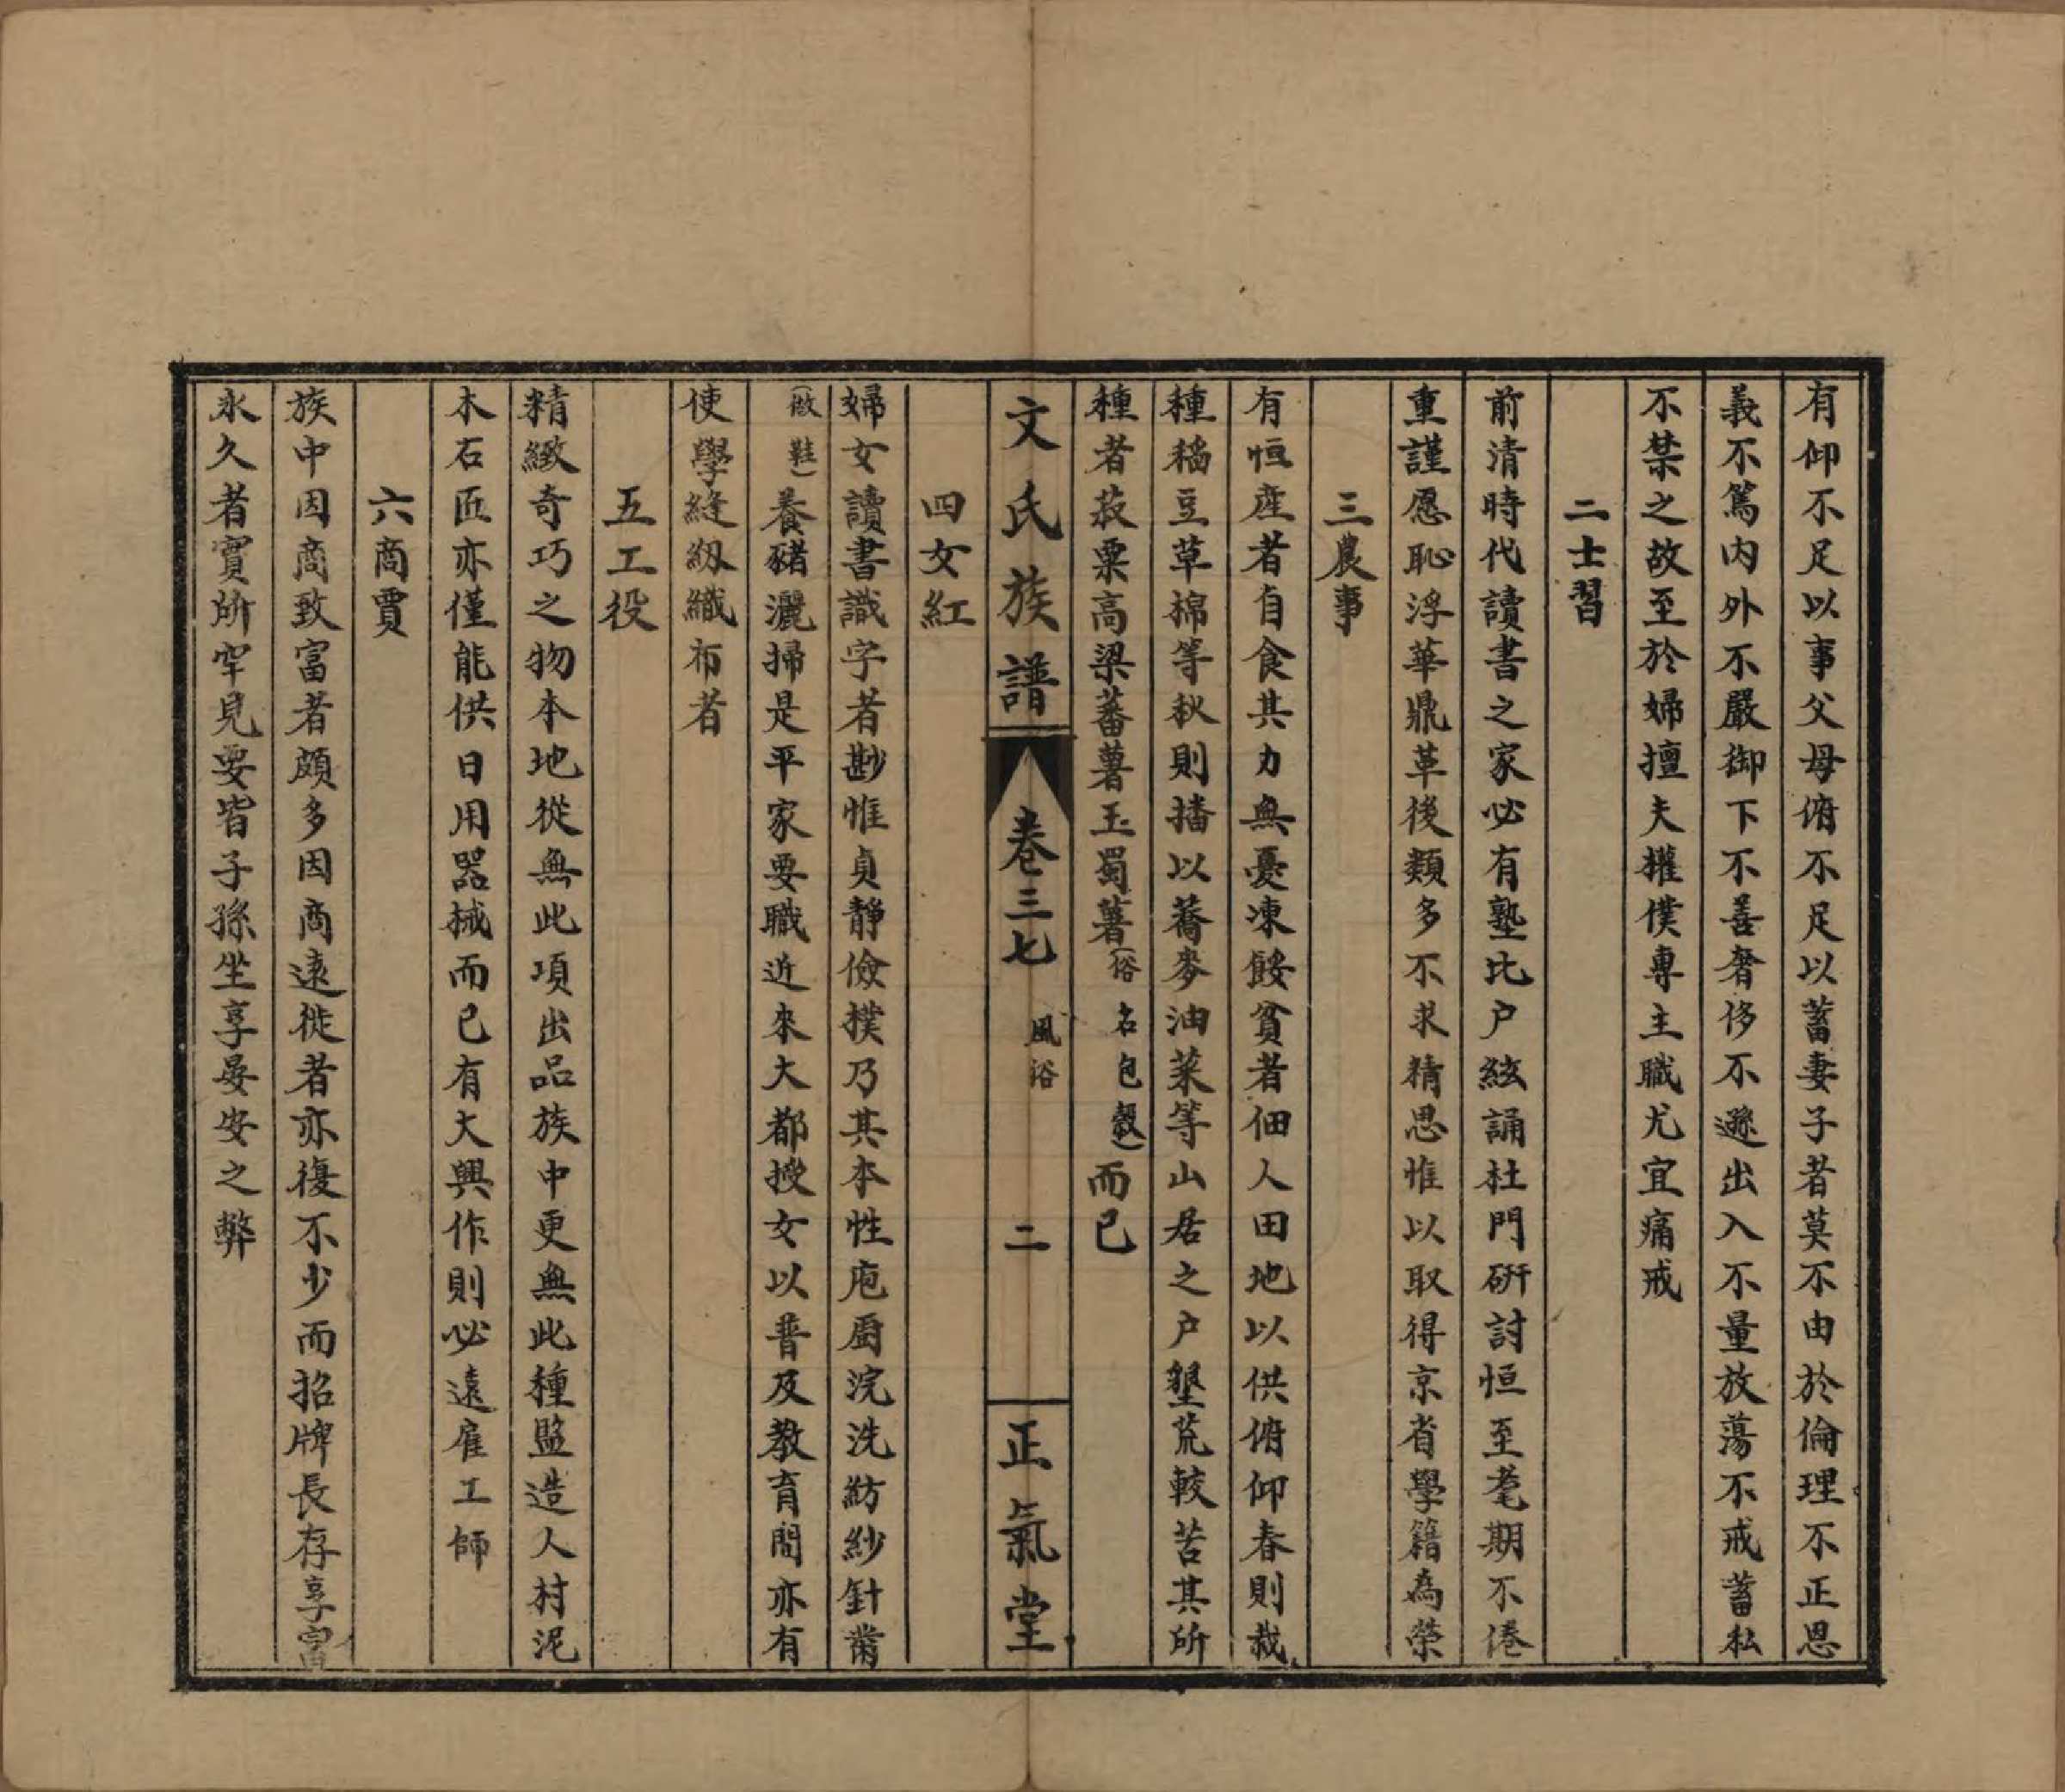 有仰不足以事父母俯不足以蓄妻子者莫不由於倫理不正恩
義不篤內外不嚴御下不善奢侈不遜出入不量放蕩不戒蓄私
不禁之故至於婦擅夫權僕專主職尤宜痛戒
二士習
前清時代讀書之家必有塾比户絃誦杜門研討恒至耄期不倦
重謹愿恥浮華鼎革後類多不求精思惟以取得京省學籍為榮
三農事
有恒産者自食其力無憂凍餒貧者佃人田地以供俯仰春則栽
種稻豆草棉等秋則播以蕎麥油菜等山居之户墾荒較苦其所
種者菽粟高梁蕃薯玉蜀薯(俗名包穀)而已
文氏族譜 卷三七 風俗 二 正氣堂
四女紅
婦女讀書識字者尠惟貞靜儉樸乃其本性庖厨浣洗紡紗針黹
(做鞋)養豬灑掃是平家要職近來大都授女以普及教育間亦有
使學縫紉織布者
五工役
精緻奇巧之物本地從無此項出品族中更無此種監造人村泥
木石匠亦僅能供日用器械而已有大興作則必遠雇工師
六商賈
族中因商致富者頗多因商遠徙者亦復不少而招牌長存享富
永久者實所罕見要皆子孫坐享晏安之弊